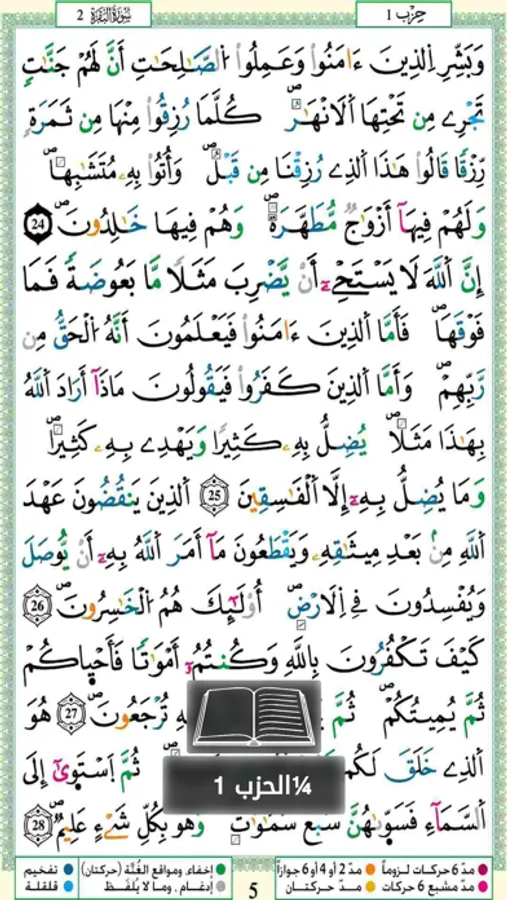 حِزْب 1
سُورَةُ البَقَرَة 2
وَبَشِّرِ اِ۬لذِينَ ءَامَنُواْ وَعَمِلُواْ اُ۬لصَّٰلِحَٰتِ أَنَّ لَهُمْ جَنَّٰتٖ
تَجْرِے مِن تَحْتِهَا اَ۬لَانْهَٰرُۖ كُلَّمَا رُزِقُواْ مِنْهَا مِن ثَمَرَةٖ
رِّزْقاٗ قَالُواْ هَٰذَا اَ۬لذِے رُزِقْنَا مِن قَبْلُۖ وَأُتُواْ بِهِۦ مُتَشَٰبِهاٗۖ
وَلَهُمْ فِيهَآ أَزْوَٰجٞ مُّطَهَّرَةٞۖ وَهُمْ فِيهَا خَٰلِدُونَۖ 24
إِنَّ اَ۬للَّهَ لَا يَسْتَحْيِۦٓ أَنْ يَّضْرِبَ مَثَلاٗ مَّا بَعُوضَةٗ فَمَا
فَوْقَهَاۖ فَأَمَّا اَ۬لذِينَ ءَامَنُواْ فَيَعْلَمُونَ أَنَّهُ اُ۬لْحَقُّ مِن
رَّبِّهِمْۖ وَأَمَّا اَ۬لذِينَ كَفَرُواْ فَيَقُولُونَ مَاذَآ أَرَادَ اَ۬للَّهُ
بِهَٰذَا مَثَلاٗۖ يُضِلُّ بِهِۦ كَثِيراٗ وَيَهْدِے بِهِۦ كَثِيراٗۖ
وَمَا يُضِلُّ بِهِۦٓ إِلَّا اَ۬لْفَٰسِقِينَ 25 اَ۬لذِينَ يَنقُضُونَ عَهْدَ
اَ۬للَّهِ مِنۢ بَعْدِ مِيثَٰقِهِۦ وَيَقْطَعُونَ مَآ أَمَرَ اَ۬للَّهُ بِهِۦٓ أَنْ يُّوصَلَ
وَيُفْسِدُونَ فِے اِ۬لَارْضِۖ أُوْلَٰٓئِكَ هُمُ اُ۬لْخَٰسِرُونَۖ 26
كَيْفَ تَكْفُرُونَ بِاللَّهِ وَكُنتُمُۥٓ أَمْوَٰتاٗ فَأَحْيَٰكُمْ
ثُمَّ يُمِيتُكُمْۖ ثُمَّ تُرْجَعُونَۖ 27 هُوَ
اَ۬لذِے خَلَقَ لَكُم ثُمَّ اَ۪سْتَو۪يٰٓ إِلَى
اَ۬لسَّمَآءِ فَسَوّ۪يٰهُنَّ سَبْعَ سَمَٰوَٰتٖۖ وَهُوَ بِكُلِّ شَےْءٍ عَلِيمٞۖ 28
1/4الحزب 1
مدّ 6 حركات لـزوماً
مدّ 2 أو 4 أو 6 جوازاً
إخفاء، ومواقع الغُنَّة (حركتان)
تفخيم
مدّ مشبع 6 حركات
مـدّ حـركتـان
إدغـام ، وما لا يُلفَـظ
قلقلة
5